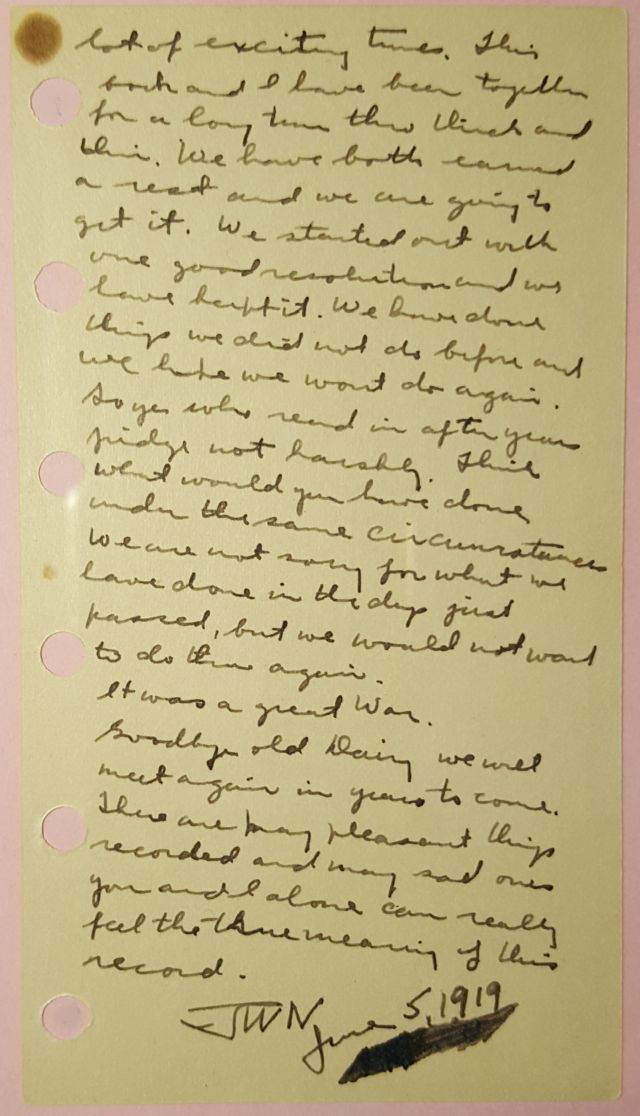 lot of exciting times. This
book and I have been together
for a long time thru thick and
thin. We have both earned
a rest and we are going to
get it. We started out with
one good resolution and we
have kept it. We have done
things we did not do before and
we hope we wont do again.
So you who read in after years
judge not harshly. Think
what would you have done
under the same circumstances
We are not sorry for what we
have done in the days just
passed, but we would not want
to do them again.
It was a great War.
Goodbye old Dairy we will
meet again in years to come.
There are many pleasant things
recorded and many sad ones
you and I alone can really
feel the true meaning of this
record.
JWN
June 5, 1919